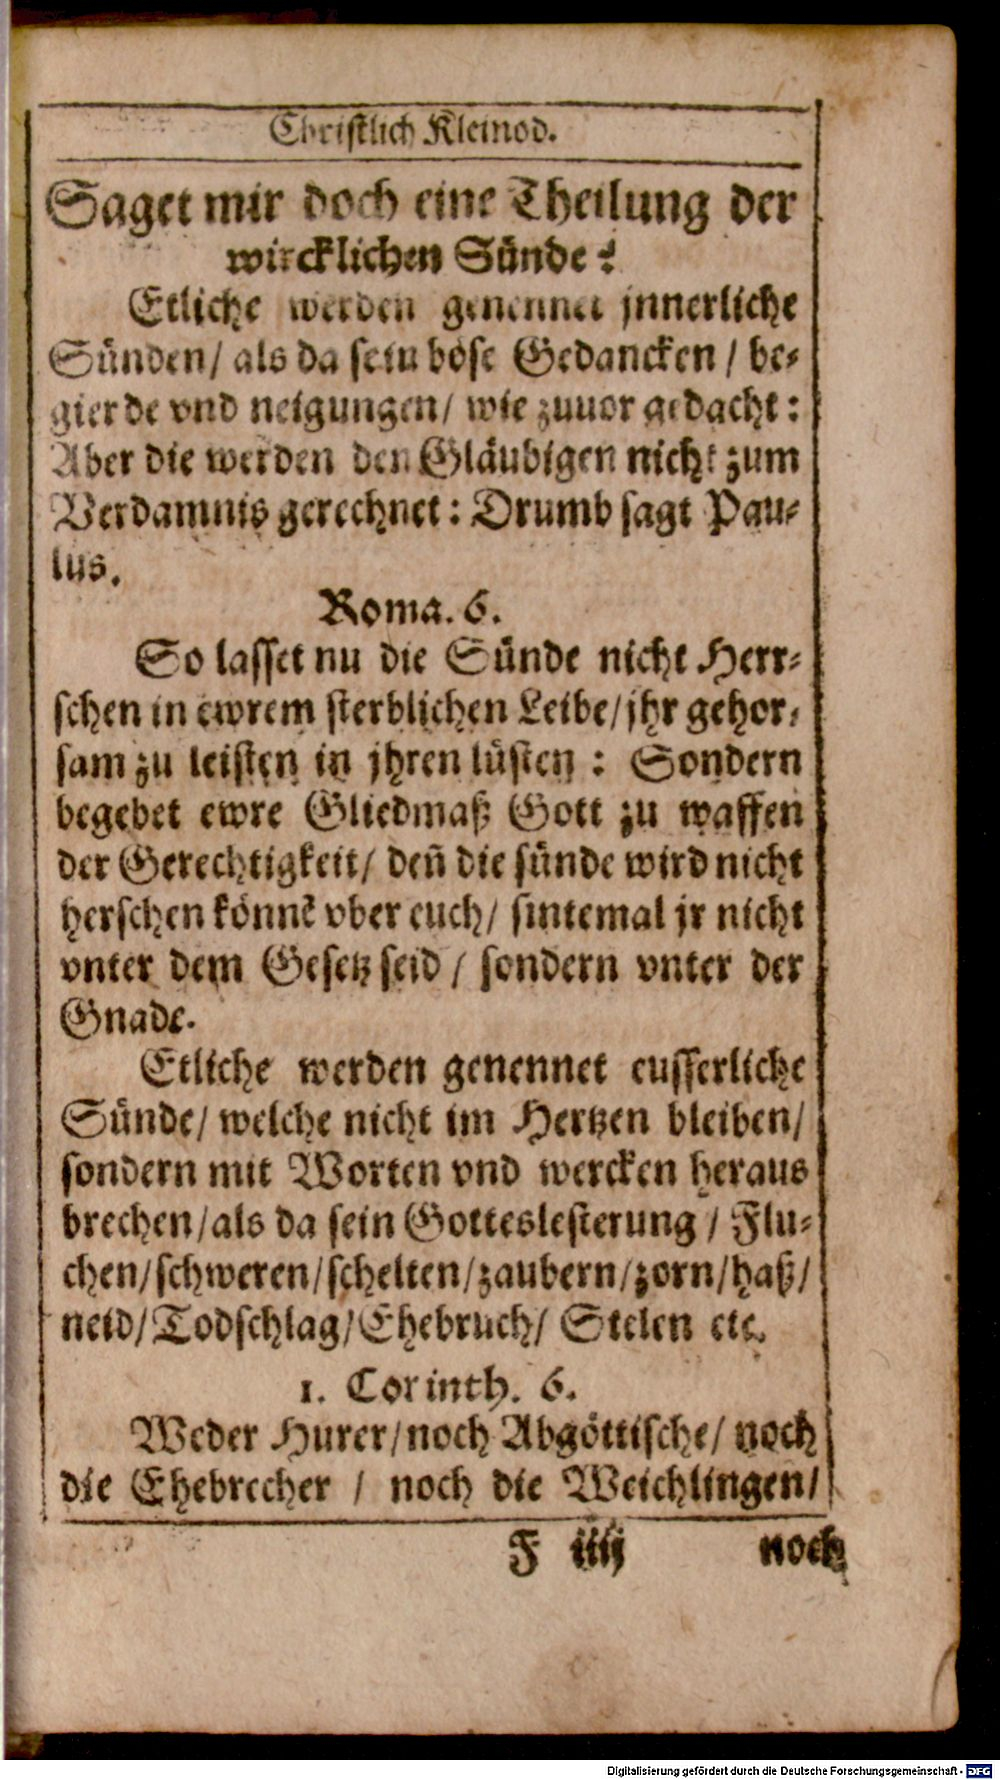 Christlich Kleinod.
Saget mir doch eine Theilung der
wircklichen Sünde?
Etliche werden genennet jnnerliche
Sünden/ als da sein böse Gedancken / be-
gierde vnd neigungen/ wie zuuor gedacht:
Aber die werden den Gläubigen nicht zum
Verdamnis gerechnet: Drumb sagt Pau-
lus.
Roma. 6.
So lasset nu die Sünde nicht Herr-
schen in ewrem sterblichen Leibe/ jhr gehor-
sam zu leisten in jhren lüsten : Sondern
begebet ewre Gliedmaß Gott zu waffen
der Gerechtigkeit/ deñ die sünde wird nicht
herschen könnẽ vber euch/ sintemal jr nicht
vnter dem Gesetz seid / sondern vnter der
Gnade.
Etliche werden genennet eusserliche
Sünde/ welche nicht im Hertzen bleiben/
sondern mit Worten vnd wercken heraus
brechen/ als da sein Gotteslesterung / Flu-
chen/ schweren/ schelten/ zaubern/ zorn/ haß/
neid/ Todschlag/ Ehebruch/ Stelen etc.
1. Corinth. 6.
Weder Hurer/ noch Abgöttische/ noch
die Ehebrecher / noch die Weichlingen/
F iiij noch
Digitalisierung gefördert durch die Deutsche Forschungsgemeinschaft - DFG